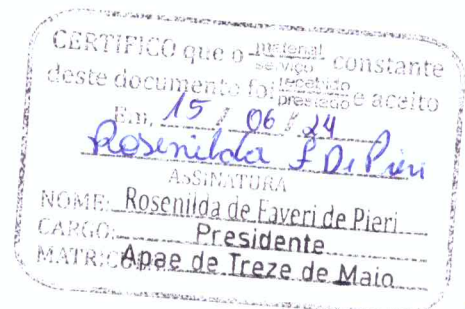 CERTIFICO que o material serviço constante
deste documento foi recebido prestado e aceito
Em, 15 / 06 / 24
Rosenilda f Di Pieri
ASSINATURA
NOME: Rosenilda de Faveri de Pieri
CARGO: Presidente
MATRIC Apae de Treze de Maio